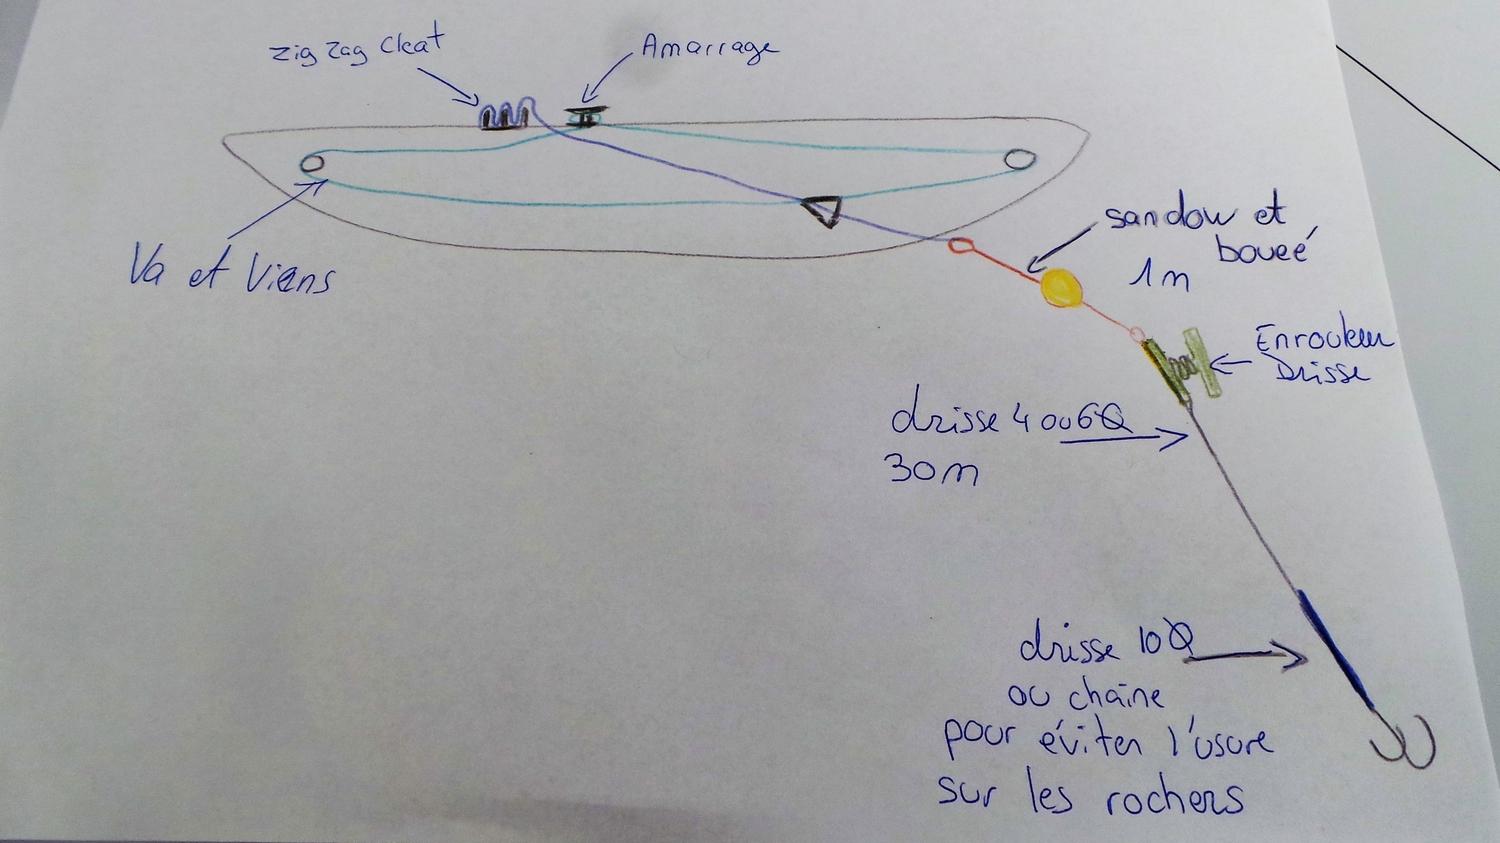 zig zag cleat
Amarrage
sandow et
boueé
1m
Va et Viens
Enrouleur
Drisse
drisse 4 ou 6 Ø
30m
drisse 10 Ø
ou chaîne
pour éviter l'usure
sur les rochers